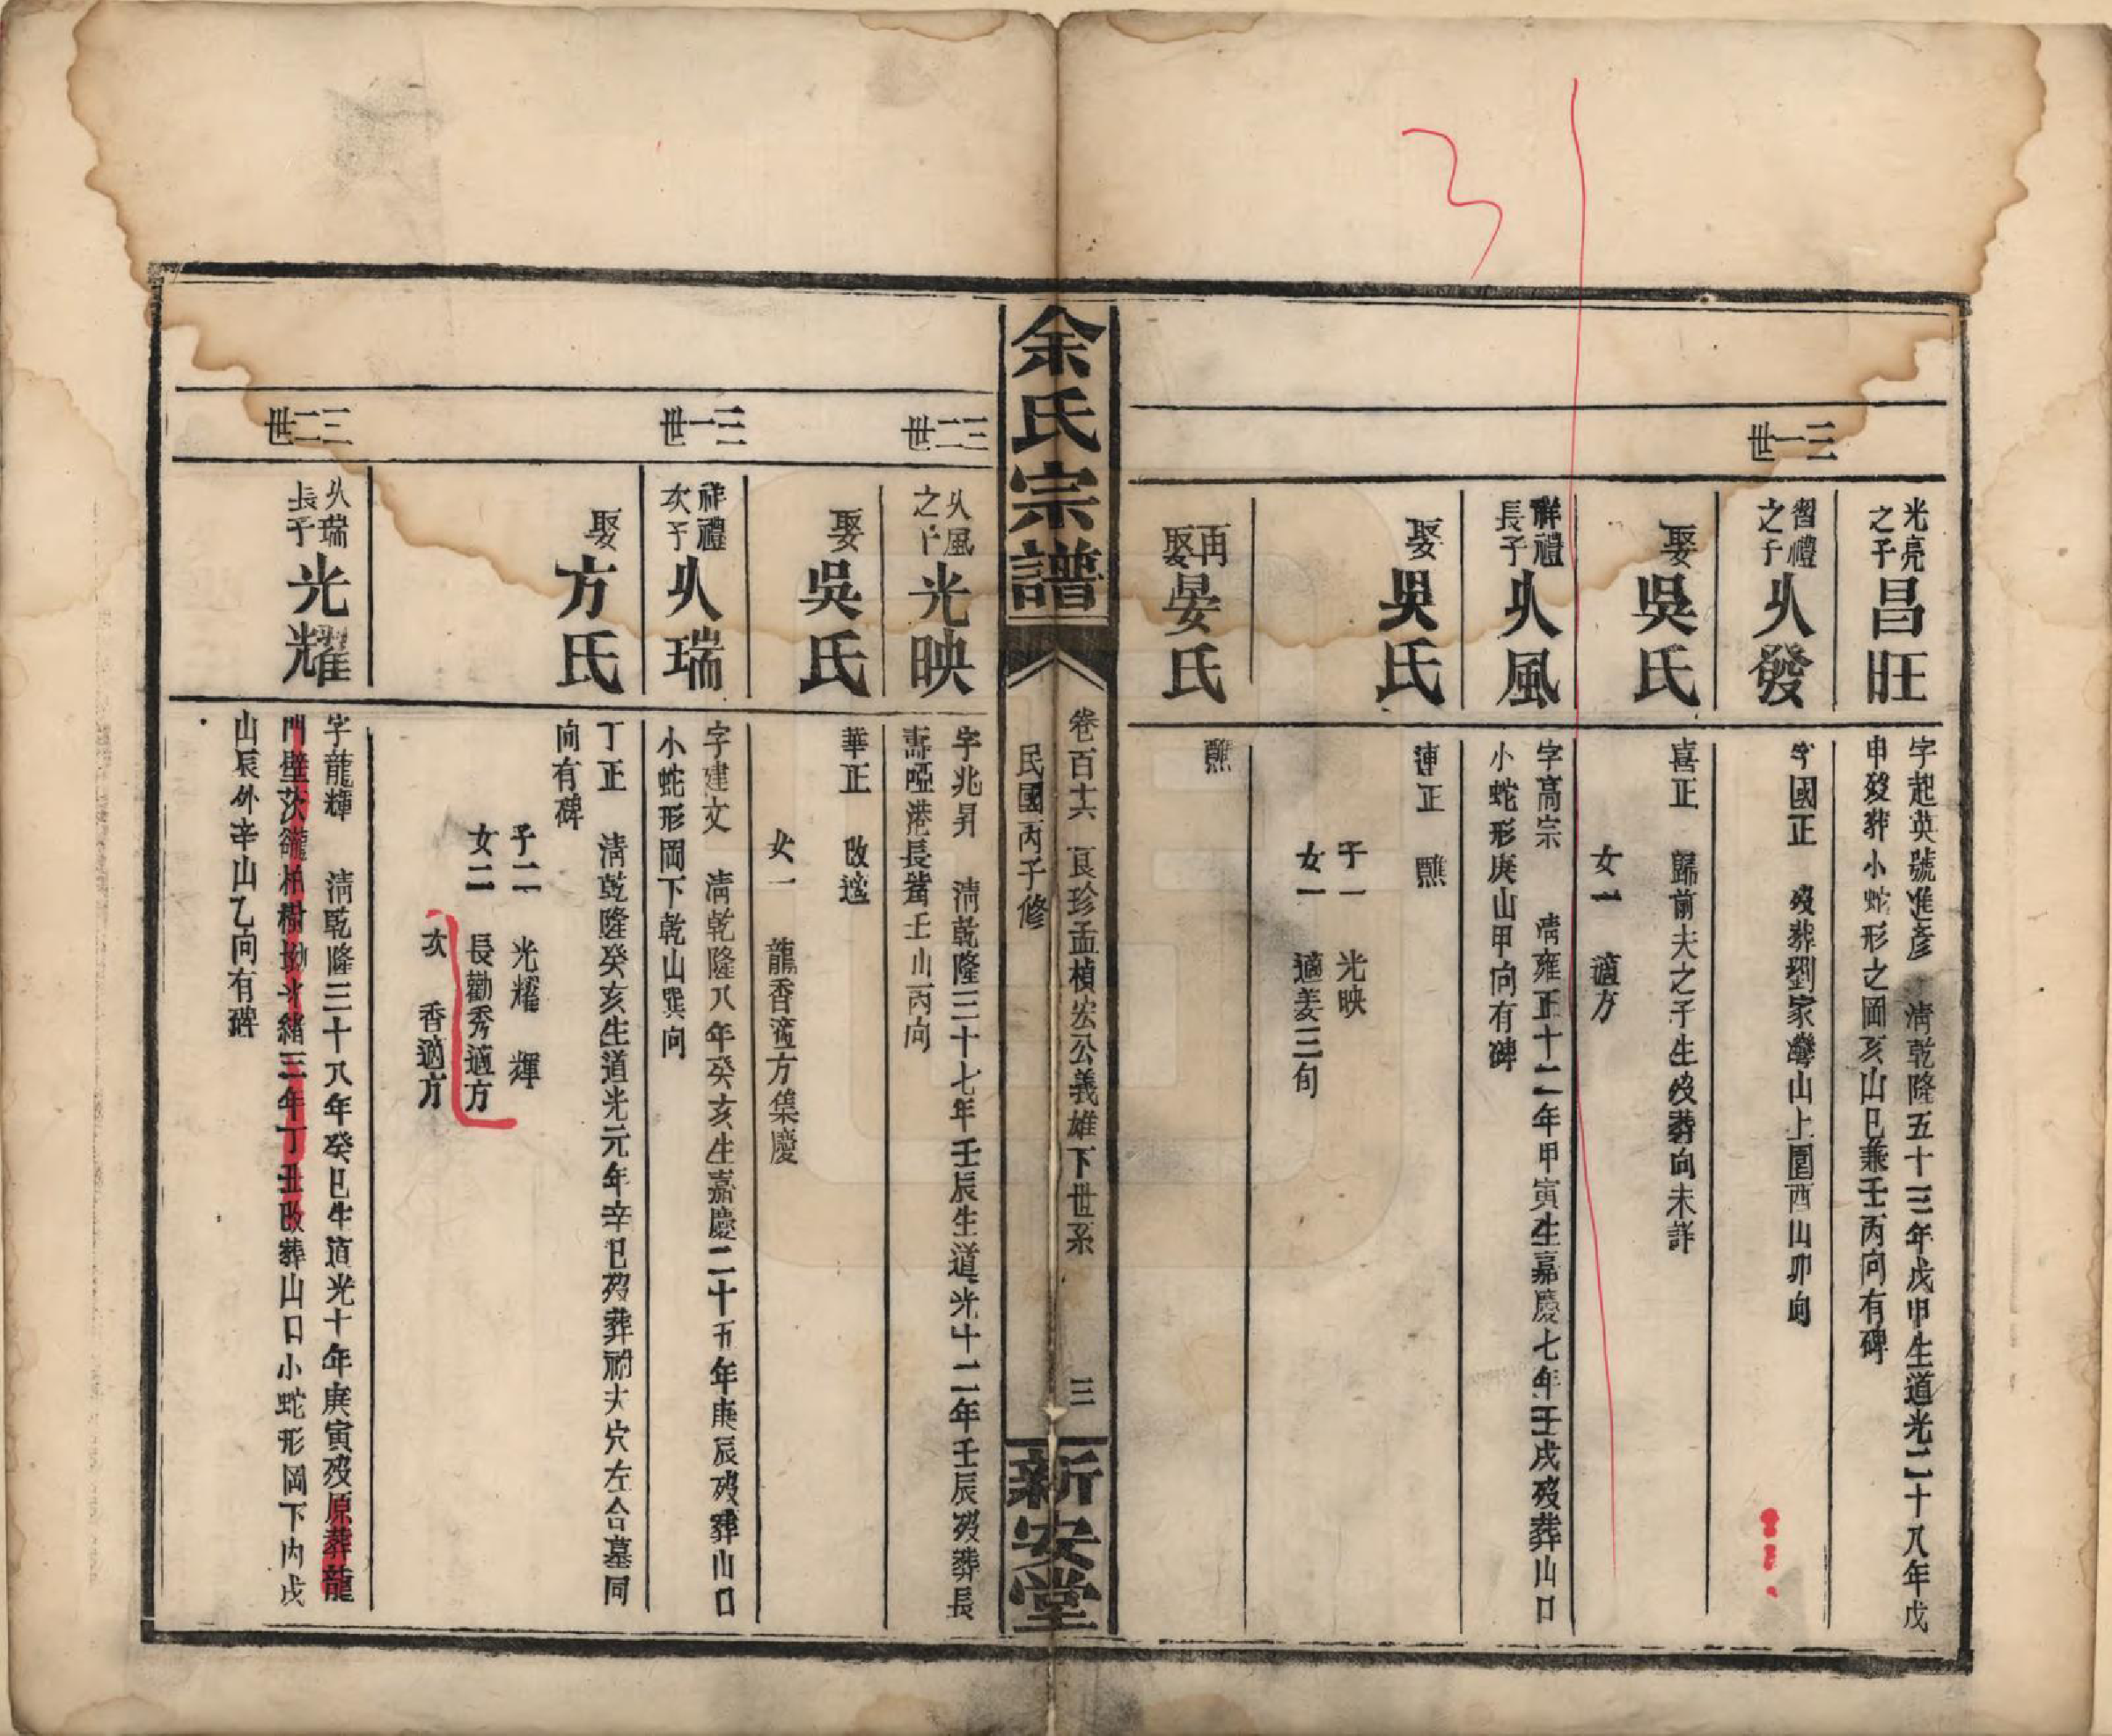 光亮
之子
昌旺
字起英號進彥 清乾隆五十三年戊申生道光二十八年戊
申歿葬小蛇形之岡亥山巳兼壬丙向有碑
三一世
習禮
之子
火發
字國正 歿葬劉家灣山上圍酉山卯向
娶
吳氏
喜正 歸前夫之子生歿葬向未詳
女一 適方
祥禮
長子
火風
字高宗 清雍正十二年甲寅生嘉慶七年壬戌歿葬山口
小蛇形庚山甲向有碑
娶
吳氏
連正 醮
子一 光映
女一 適姜三旬
再
娶
晏氏
醮
余氏宗譜
卷百十六 良珍孟楨宏公義雄下世系
三
民國丙子修
新安堂
三二世
火風
之子
光映
字兆昇 清乾隆三十七年壬辰生道光十二年壬辰歿葬長
壽啞港長嘴壬山丙向
娶
吳氏
華正 改適
女一 龍香適方集慶
三一世
祥禮
次子
火瑞
字建文 清乾隆八年癸亥生嘉慶二十五年庚辰歿葬山口
小蛇形岡下乾山巽向
娶
方氏
丁正 清乾隆癸亥生道光元年辛巳歿葬祔夫穴左合墓同
向有碑
子二 光耀 輝
女二 長勸秀適方
次 香適方
三二世
火瑞
長子
光耀
字龍輝 清乾隆三十八年癸巳生道光十年庚寅歿原葬龍
門壁茨龍柏樹坳光緒三年丁丑改葬山口小蛇形岡下內戊
山辰外辛山乙向有碑